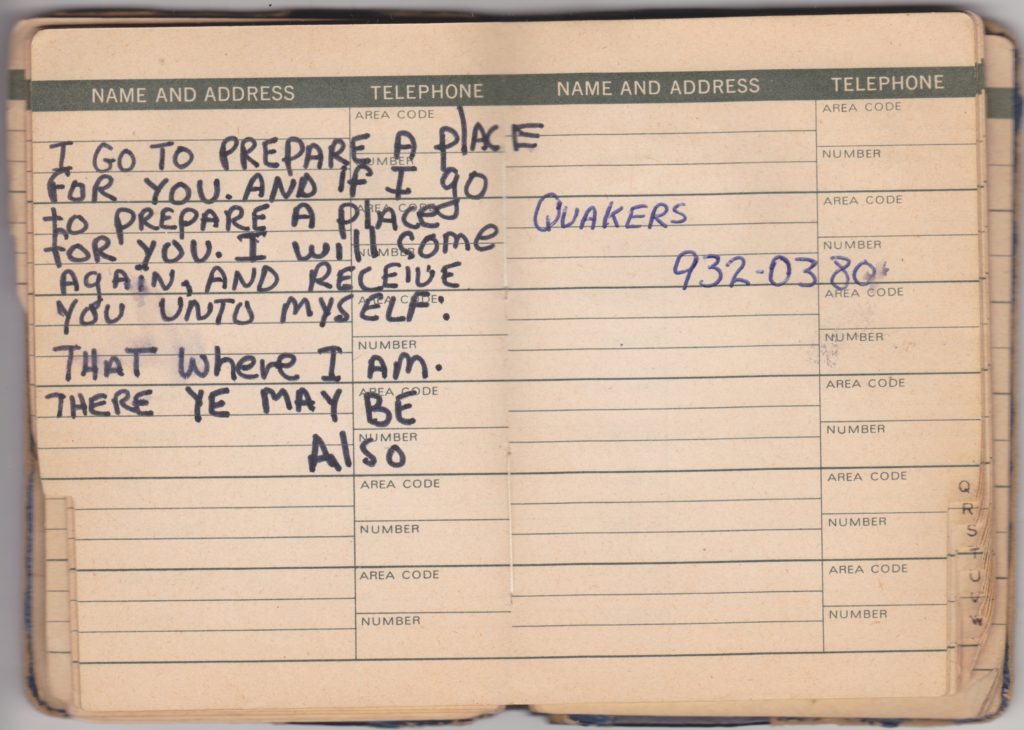 NAME AND ADDRESS TELEPHONE
AREA CODE
I GO TO PREPARE A PlACE
NUMBER
FOR YOU. AND If I go
to PREPARE A PlACE
AREA CODE
FOR YOU. I will come
NUMBER
AgAiN, AND RECEIVE
AREA CODE
YOU UNTO MYSELF:
NUMBER
THAT Where I AM.
AREA CODE
THERE YE MAY BE
NUMBER
Also
AREA CODE
NUMBER
AREA CODE
NUMBER
NAME AND ADDRESS TELEPHONE
AREA CODE
NUMBER
AREA CODE
QUAKERS
NUMBER
932-0380
AREA CODE
NUMBER
AREA CODE
NUMBER
AREA CODE
NUMBER
AREA CODE
NUMBER
Q
R
S
T
U